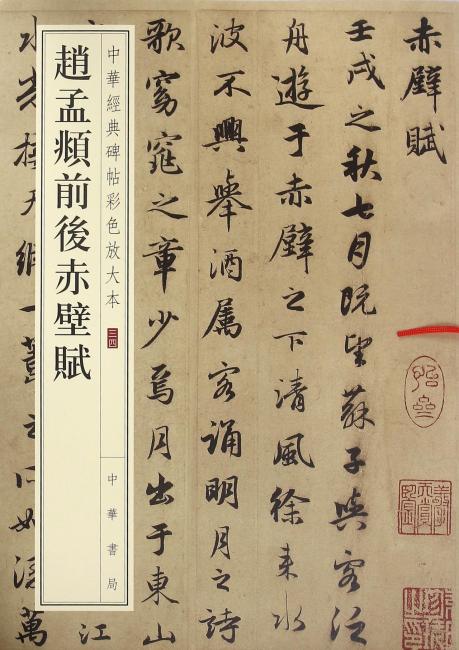 赤壁賦
壬戌之秋七月既望蘇子與客泛
舟遊于赤壁之下清風徐来水
波不興舉酒屬客誦明月之詩
歌窈窕之章少焉月出于東山
中華經典碑帖彩色放大本
三四
中華書局
江
趙孟頫前後赤壁賦
水光接天縱一葦之所如凌萬